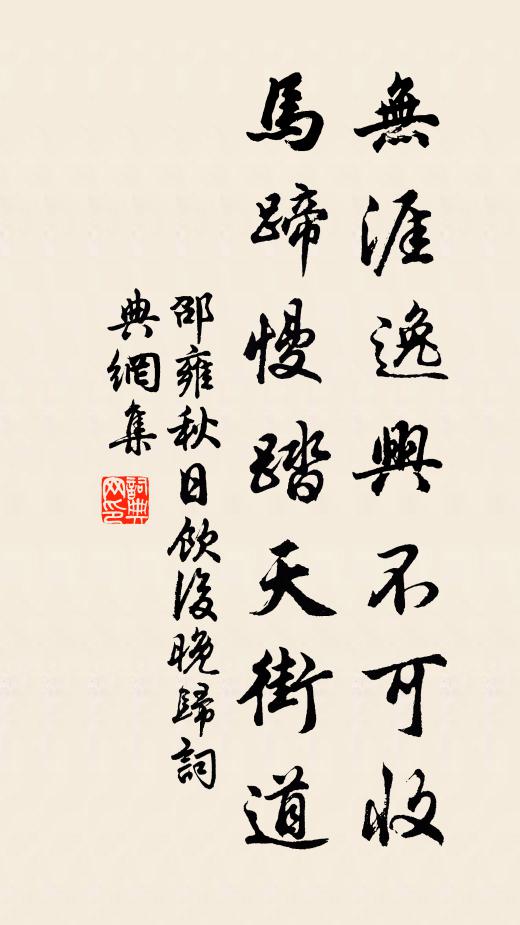 無涯逸興不可收
馬蹄慢踏天街道
邵雍秋日飲後晚歸詞
典網集
詞典
网印